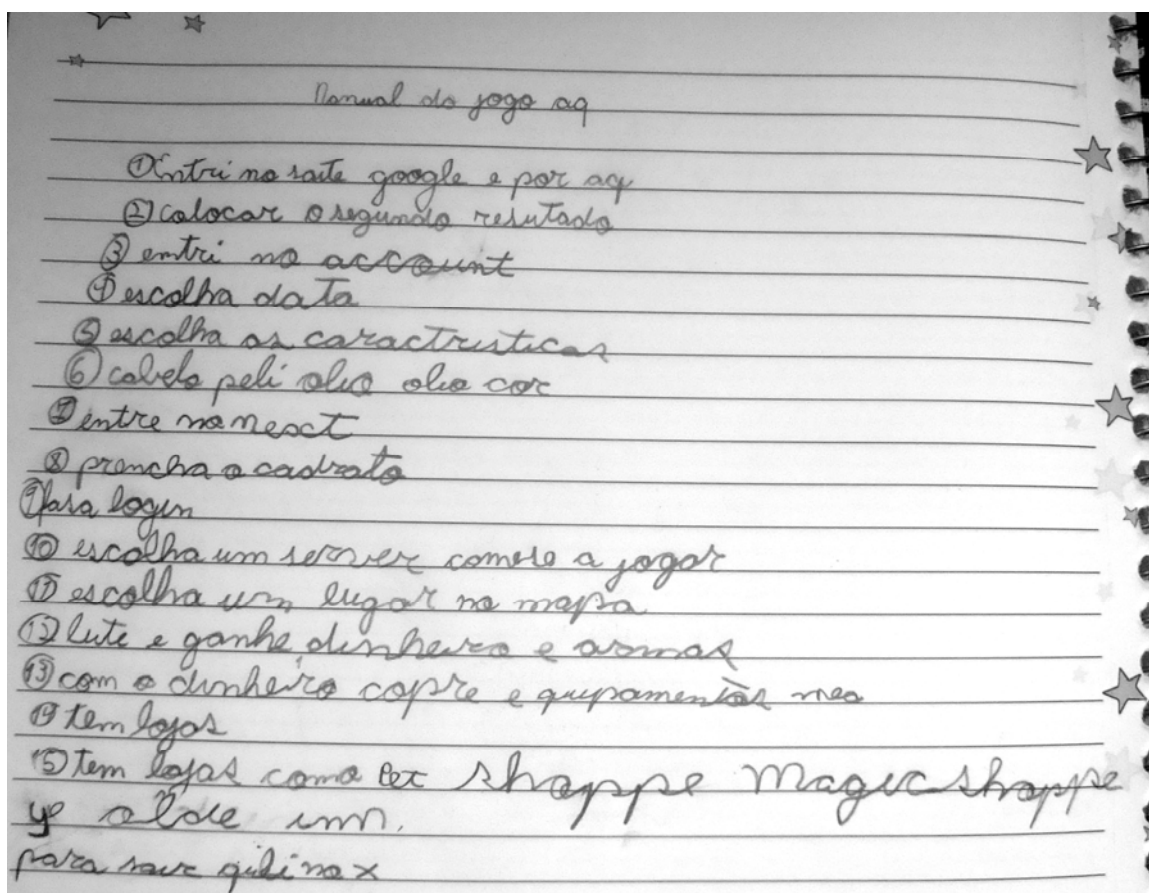 Manual do jogo aq
① Entri no saite google e por aq
② colocar o segundo resutado
③ entri no account
④ escolha data
⑤ escolha as caractristicas
⑥ cabelo peli olho olho cor
⑦ entre no nesct
⑧ prencha o cadrato
⑨ fasa login
⑩ escolha um server comese a jogar
⑪ escolha um lugar no mapa
⑫ lute e ganhe dinheiro e armas
⑬ com o dinheiro copre equipamentos
⑭ tem lojas
⑮ tem lojas como Pet shoppe Magic shoppe
ye olde inn.
para sair no x